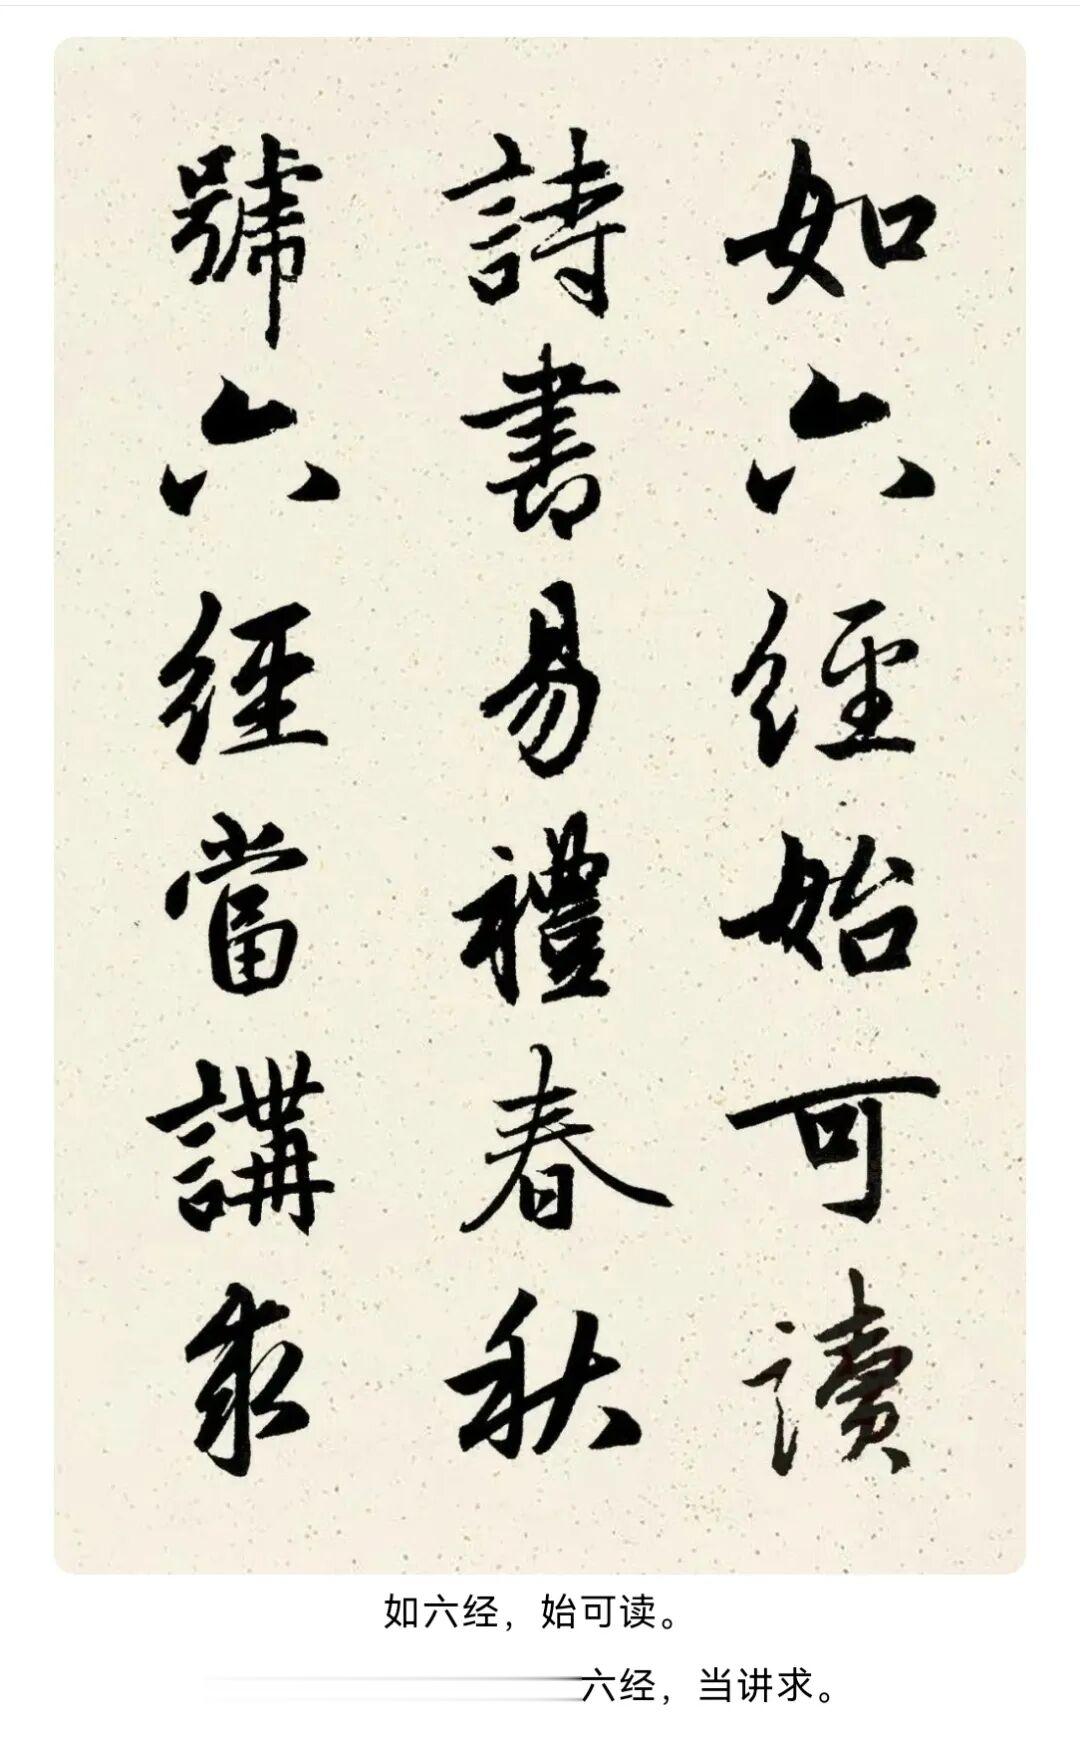 如六經始可讀
詩書易禮春秋
號六經當講求
如六经，始可读。
六经，当讲求。